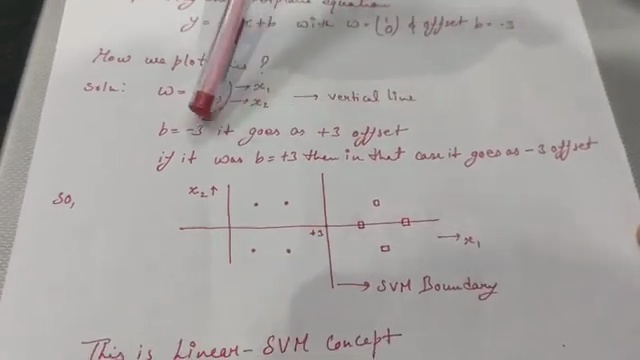 equation
y = x + b with w = (1 0) & offset b = -3
How we plot ?
Soln: w = → x₁
→ x₂ → vertical line
b = -3 it goes as +3 offset
if it was b = +3 then in that case it goes as -3 offset
So,
x₂↑
+3
→ x₁
→ SVM Boundary
This is Linear-SVM concept